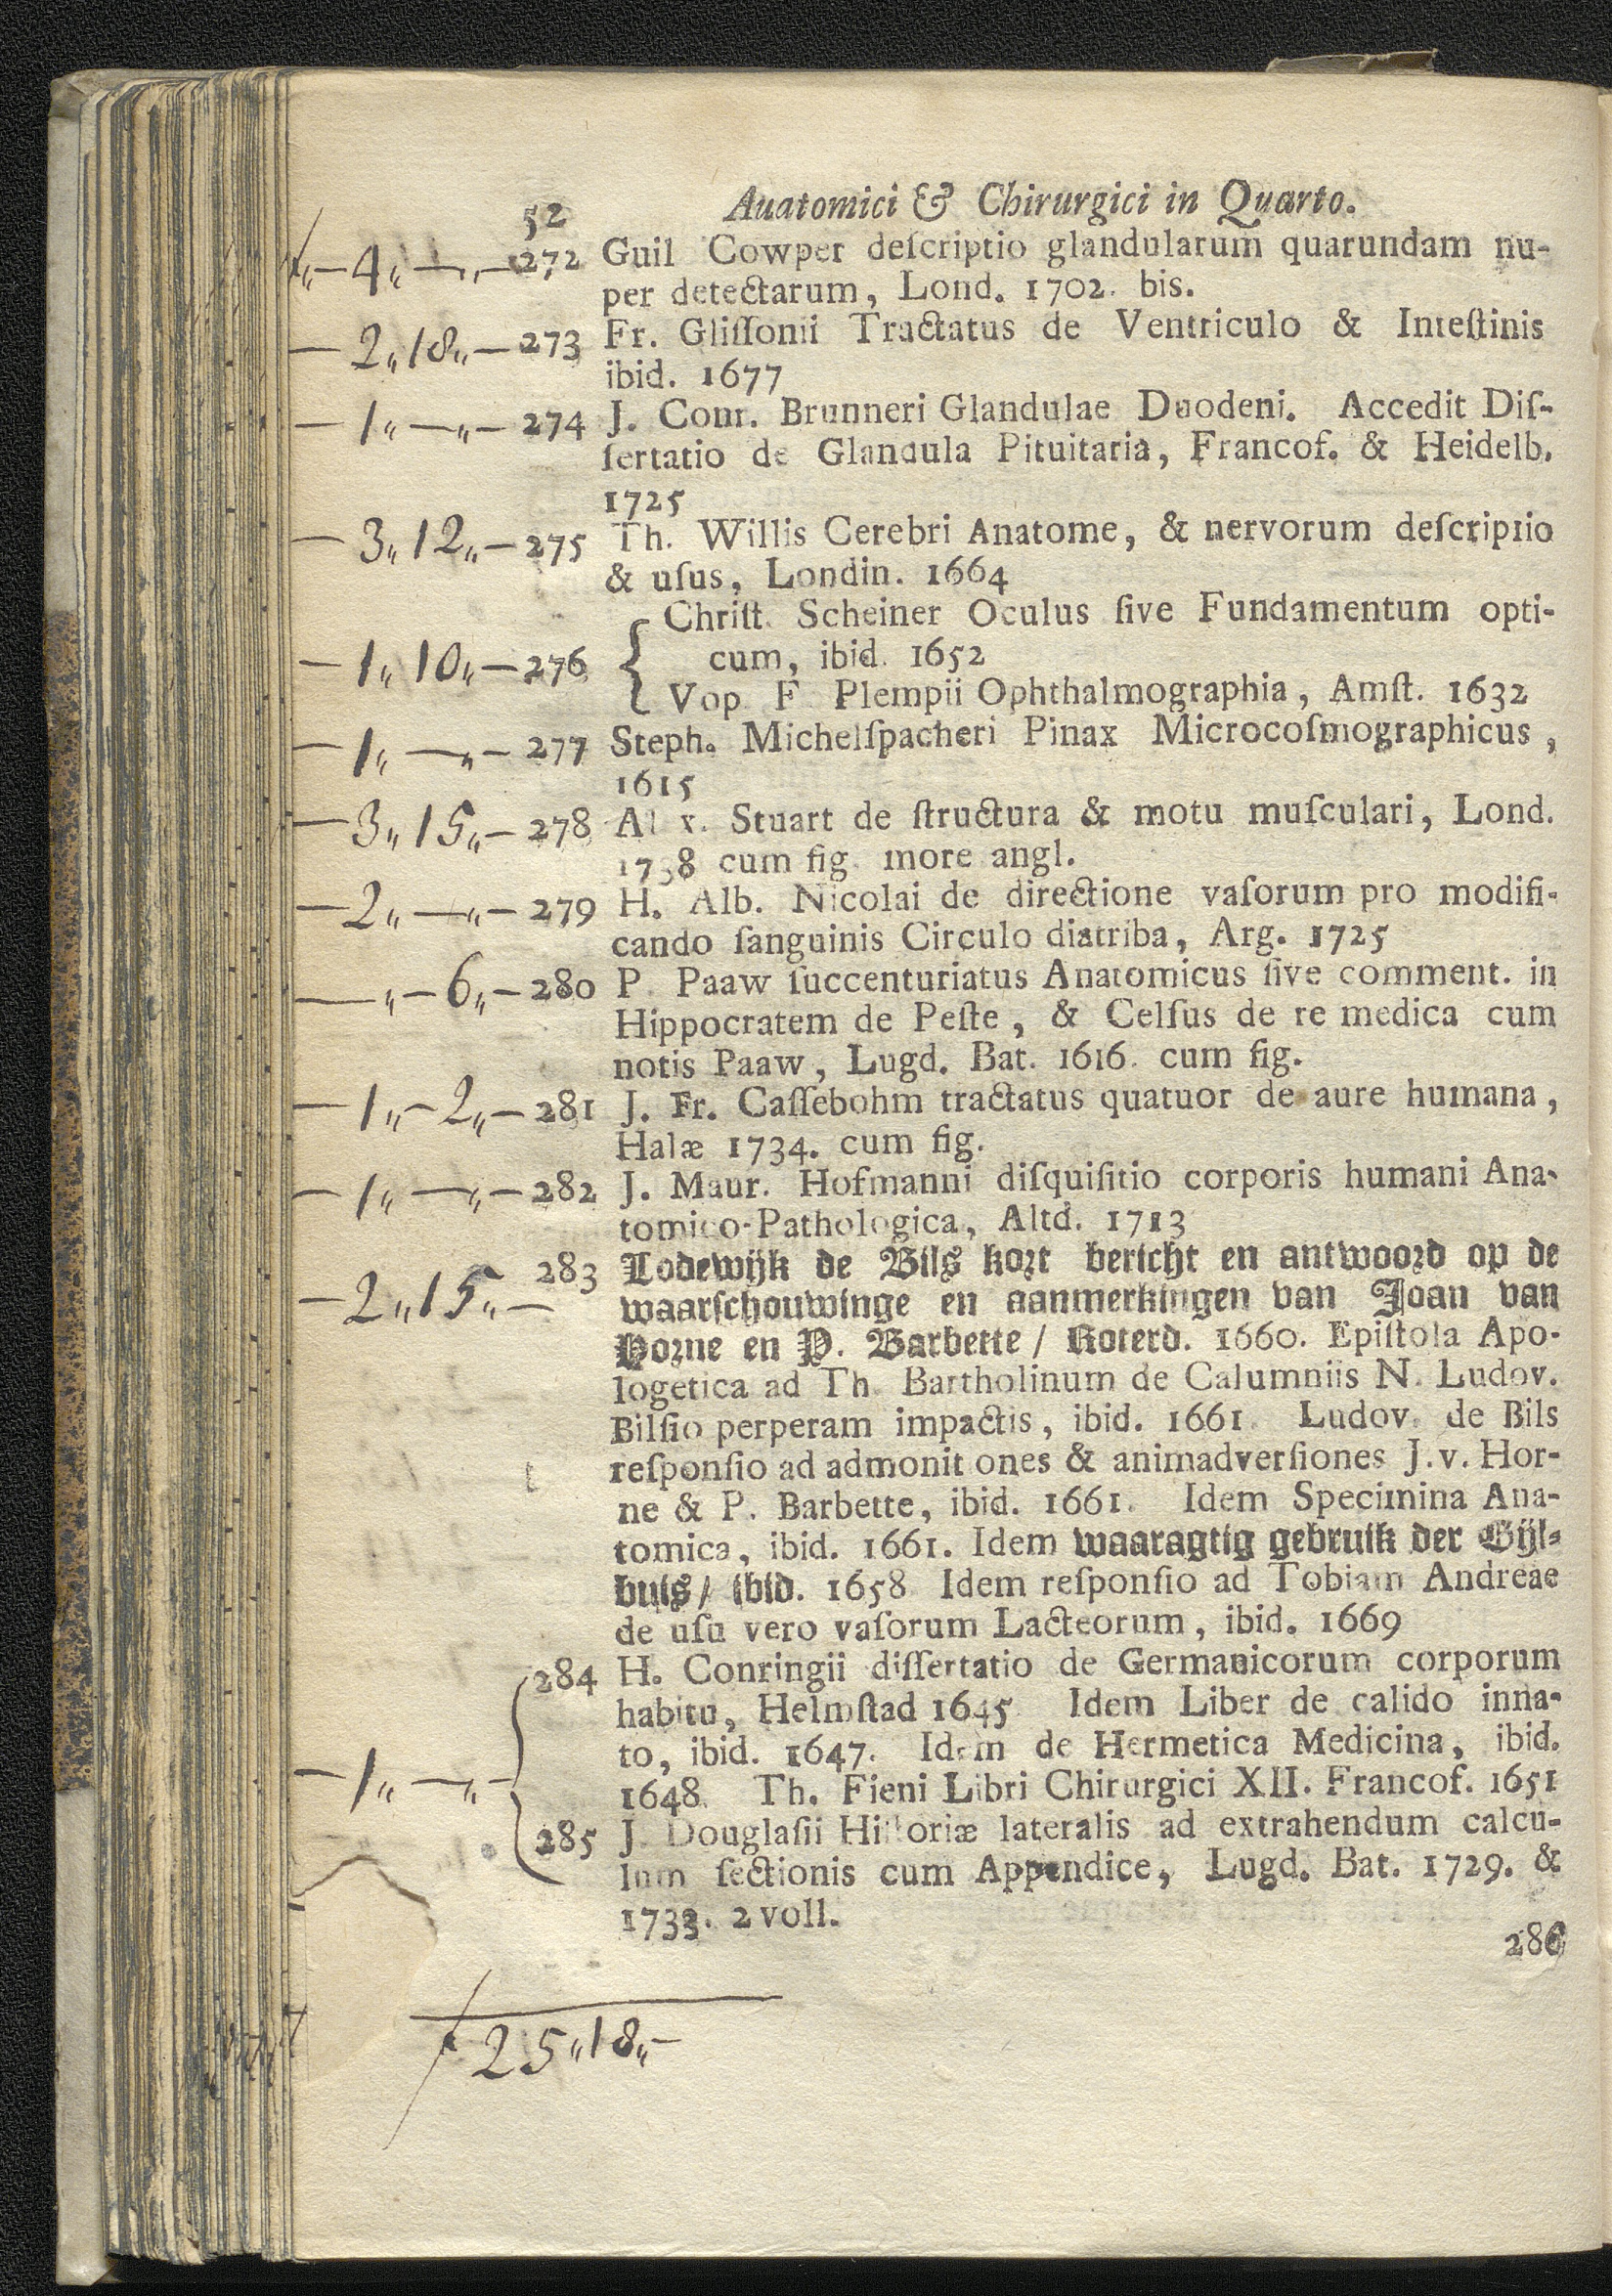 52 Auatomici & Chirurgici in Quarto.
ƒ„—4„—„—272 Guil Cowper deſcriptio glandularum quarundam nu-
per detectarum, Lond. 1702. bis.
—2„18„—273 Fr. Gliſſonii Tractatus de Ventriculo & Inteſtinis
ibid. 1677
—1„—„—274 J. Conr. Brunneri Glandulae Duodeni. Accedit Diſ-
ſertatio de Glandula Pituitaria, Francof. & Heidelb.
1725
—3„12„—275 Th. Willis Cerebri Anatome, & nervorum deſcriptio
& uſus, Londin. 1664
Chriſt. Scheiner Oculus ſive Fundamentum opti-
—1„10„—276 { cum, ibid. 1652
Vop. F. Plempii Ophthalmographia, Amſt. 1632
—1„—„—277 Steph. Michelſpacheri Pinax Microcoſmographicus,
1615
—3„15„—278 Al x. Stuart de ſtructura & motu muſculari, Lond.
1738 cum fig. more angl.
—2„—„—279 H. Alb. Nicolai de directione vaſorum pro modifi-
cando ſanguinis Circulo diatriba, Arg. 1725
—„—6„—280 P. Paaw ſuccenturiatus Anatomicus ſive comment. in
Hippocratem de Peſte, & Celſus de re medica cum
notis Paaw, Lugd. Bat. 1616. cum fig.
—1„—2„—281 J. Fr. Caſſebohm tractatus quatuor de aure humana,
Halæ 1734. cum fig.
—1„—„—282 J. Maur. Hofmanni diſquiſitio corporis humani Ana-
tomico-Pathologica, Altd. 1713
—2„15„— 283 Lodewijk de Bils kort bericht en antwoord op de
waarſchouwinge en aanmerkingen van Joan van
Horne en P. Barbette / Roterd. 1660. Epiſtola Apo-
logetica ad Th. Bartholinum de Calumniis N. Ludov.
Bilſio perperam impactis, ibid. 1661. Ludov. de Bils
reſponſio ad admonit ones & animadverſiones J. v. Hor-
ne & P. Barbette, ibid. 1661. Idem Specimina Ana-
tomica, ibid. 1661. Idem waaragtig gebruik der Gijl-
buis / ibid. 1658. Idem reſponſio ad Tobiam Andreae
de uſu vero vaſorum Lacteorum, ibid. 1669
284 H. Conringii diſſertatio de Germanicorum corporum
habitu, Helmſtad 1645. Idem Liber de calido inna-
to, ibid. 1647. Idem de Hermetica Medicina, ibid.
—1„—„— 1648. Th. Fieni Libri Chirurgici XII. Francof. 1651
285 J. Douglaſii Hiſtoriæ lateralis ad extrahendum calcu-
lum ſectionis cum Appendice, Lugd. Bat. 1729. &
1733. 2 voll.
286
ƒ 25„18„—